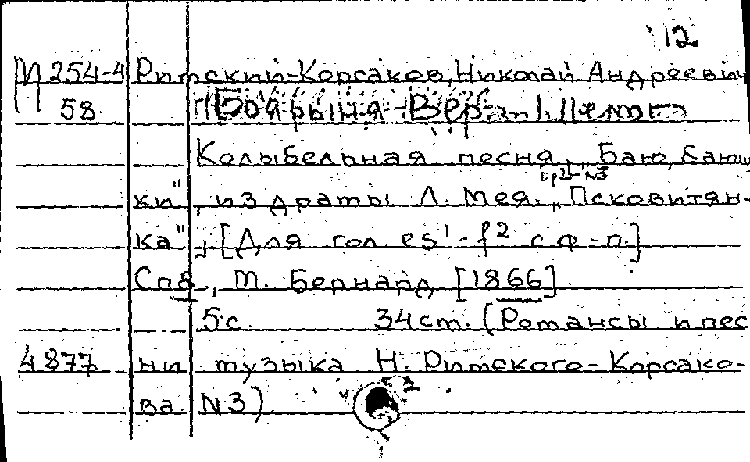 12
М 254-4 Римский-Корсаков, Николай Андреевич
58 "Боярыня Вера
Колыбельная песня, Баю, баюш
ки", из драмы Л. Мея „Псковитян-
ор2 N3
ка", [Для гол es'-f² с ф-п.]
Спб, М. Бернард [1866]
5 с. 34 cm. (Романсы и пес
4877 ни музыка Н. Римского-Корсако-
ва N3)